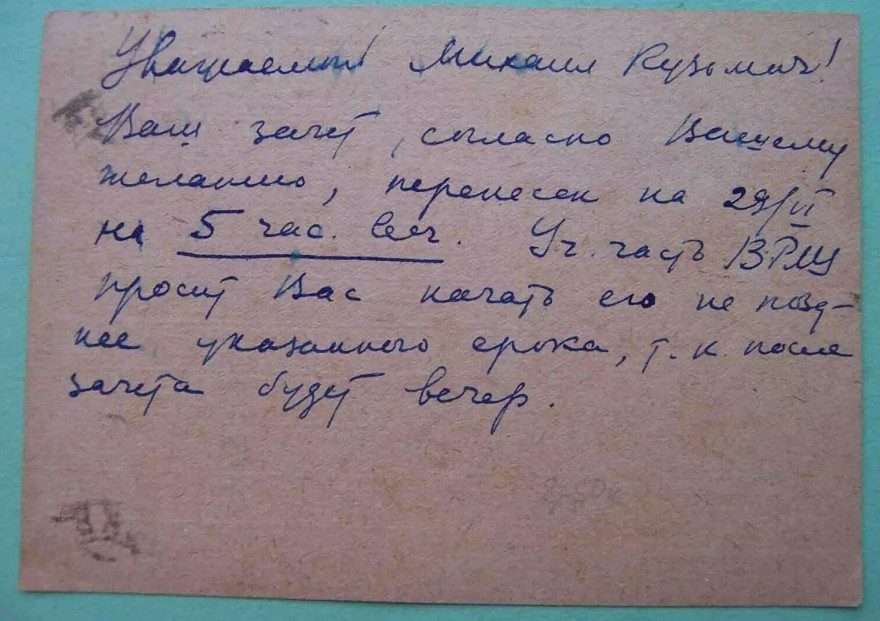 Уважаемый Михаил Кузьмич!
Ваш зачет, согласно Вашему
желанию, перенесен на 29/VI
на 5 час. веч. Уч. часть ВРМШ
просит Вас начать его не позд-
нее указанного срока, т. к. после
зачета будет вечер.